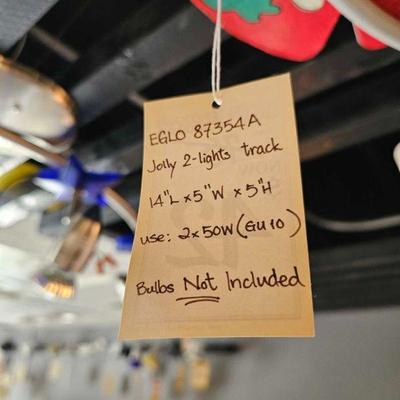 EGLO 87354A
Jolly 2-lights track
14"L x 5"W x 5"H
use: 2x50W (GU10)
Bulbs Not Included